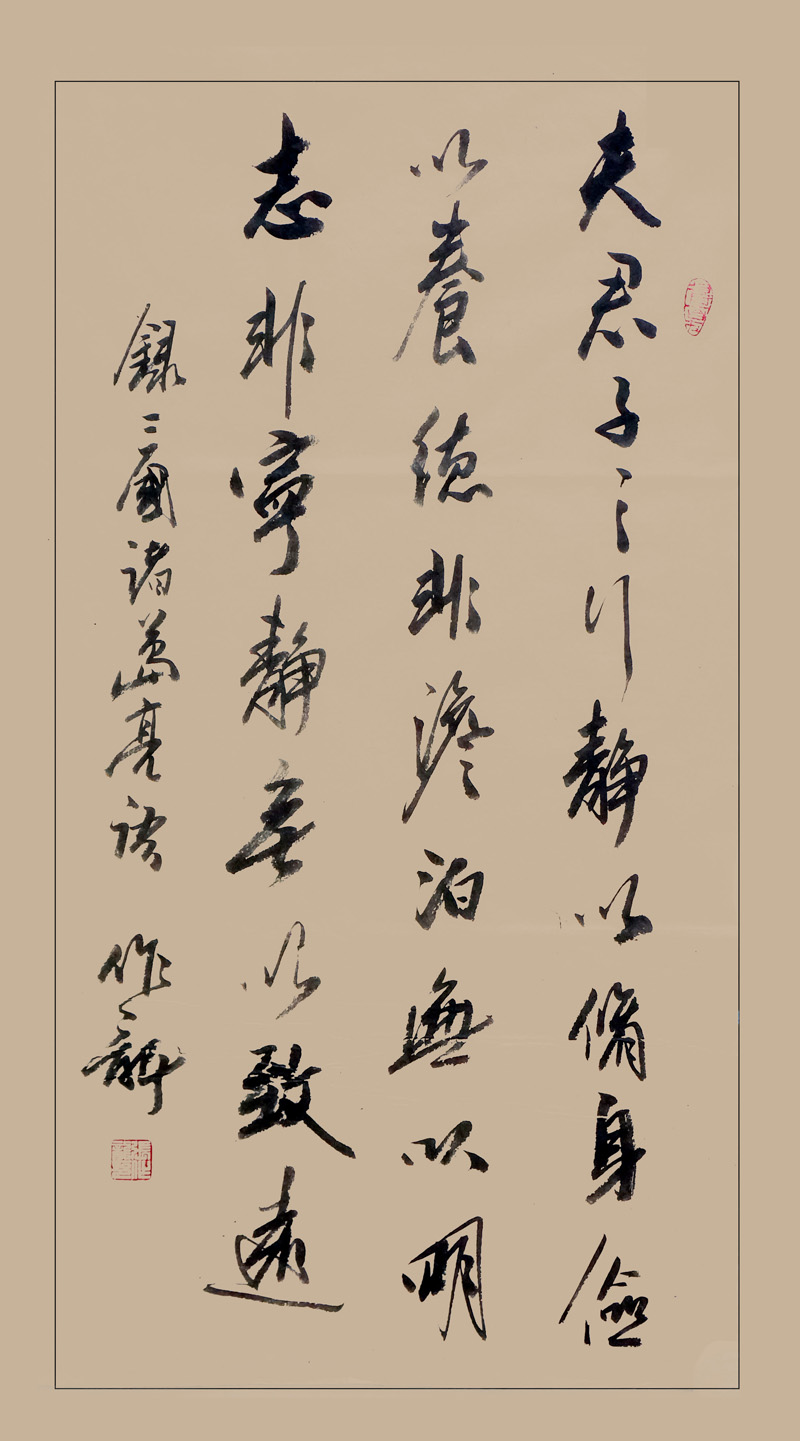 夫君子之行靜以脩身儉
以養德非澹泊無以明
志非寧靜無以致遠
錄三國諸葛亮語 作